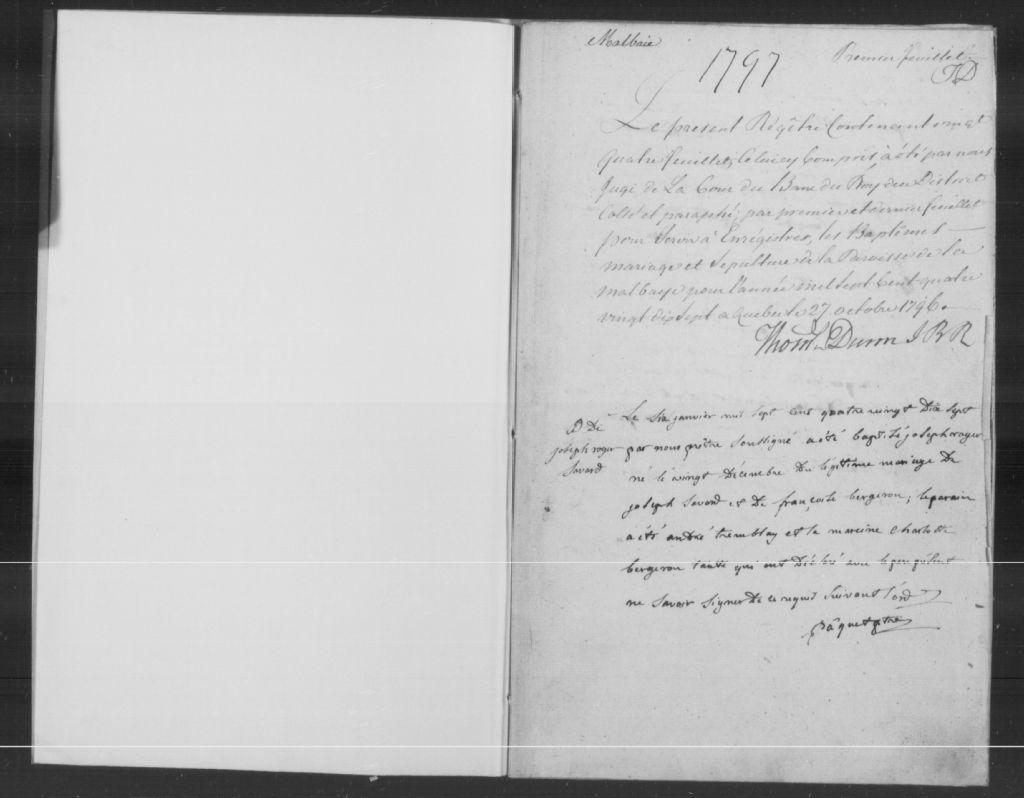 Malbaie
1797
Premier feuillet
TD
Le present Régître Contenant vingt
quatre feuillets, Celuicy Compris, a été par nous
Juge de La Cour du Banc du Roy du District
Cotté et paraphé, par premier et dernier feuillet
pour Servir à Enrégistrer, les Baptêmes
mariage et Sepulture de la Paroisse de la
malbaye pour l'année mil Sept Cent quatre
vingt dix Sept a Quebec le 27 octobre 1796.
Thom Dunn J B R
B De
joseph roger
Savard
Le Six janvier mil sept cent quatre vingt Dix Sept
par nous prêtre Soussigné a été baptisé joseph roger
né le vingt Décembre Du légitime mariage De
joseph Savard et De françoise bergeron; le parain
a été andré tremblay et la mareine Charlotte
bergeron tante qui ont Déclaré avec le pere
ne Savoir Signer De ce requis Suivant l'ord
Pâquet ptre